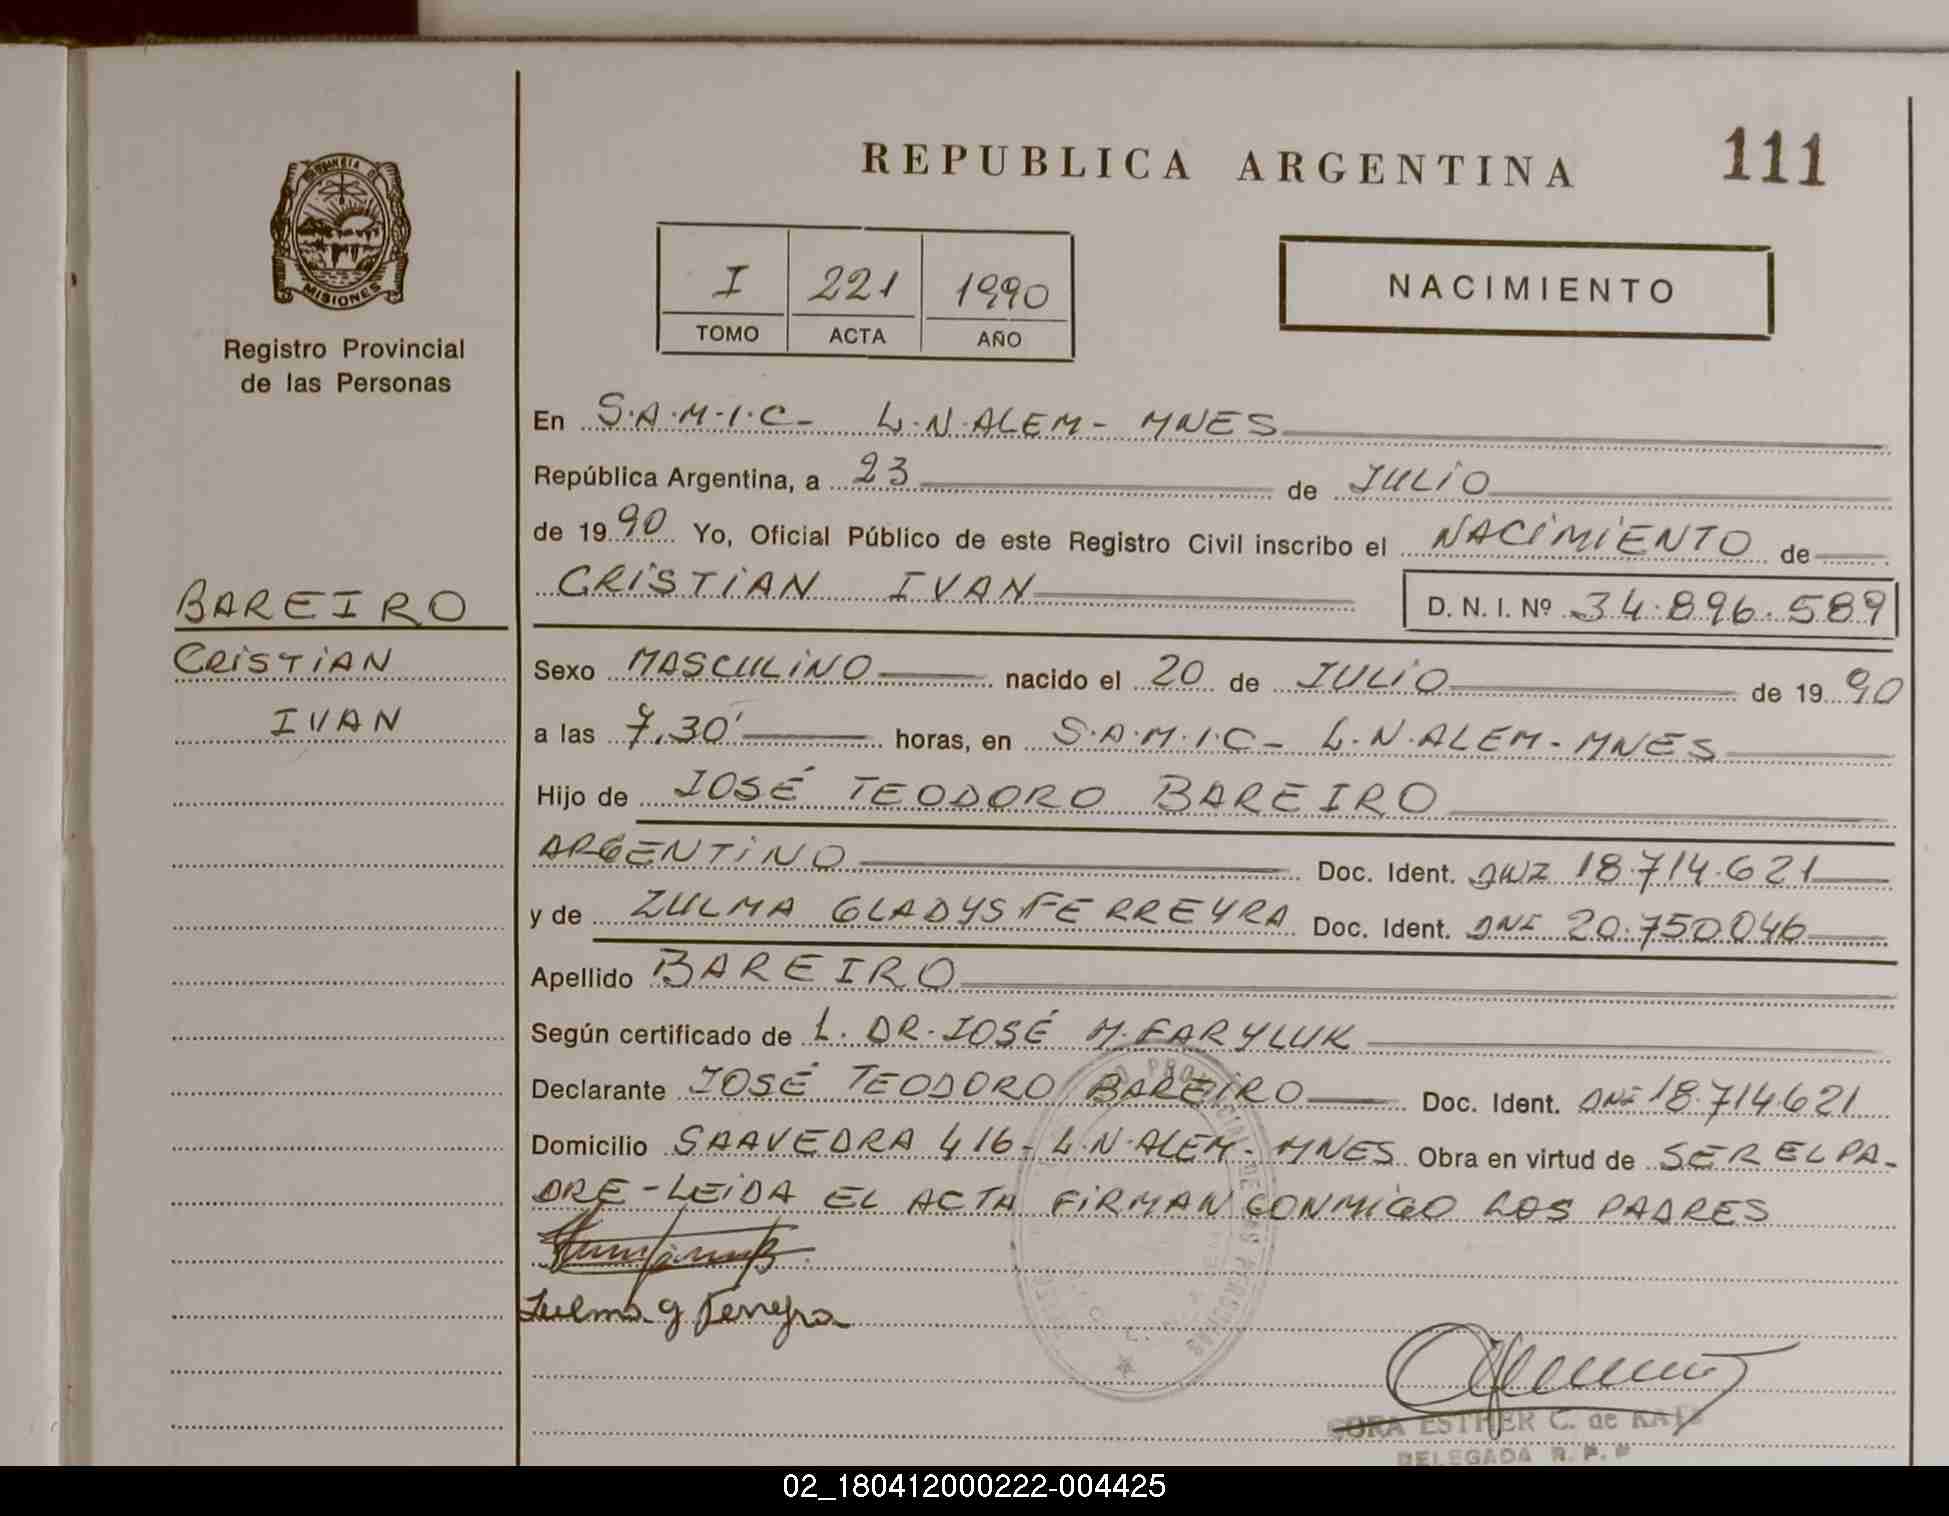 PROVINCIA DE
MISIONES
Registro Provincial
de las Personas
BAREIRO
CRISTIAN
IVAN
REPUBLICA ARGENTINA 111
I 221 1990
TOMO ACTA AÑO
NACIMIENTO
En S.A.M.I.C- L.N.ALEM- MNES
República Argentina, a 23 de JULIO
de 1990 Yo, Oficial Público de este Registro Civil inscribo el NACIMIENTO de
CRISTIAN IVAN D. N. I. Nº 34.896.589
Sexo MASCULINO nacido el 20 de JULIO de 1990
a las 7.30' horas, en S.A.M.I.C- L.N.ALEM- MNES
Hijo de JOSÉ TEODORO BAREIRO
ARGENTINO Doc. Ident. DNI 18.714.621
y de ZULMA GLADYS FERREYRA Doc. Ident. DNI 20.750.046
Apellido BAREIRO
Según certificado de L. DR. JOSÉ M. FARYLUK
Declarante JOSÉ TEODORO BAREIRO Doc. Ident. DNI 18.714.621
Domicilio SAAVEDRA 416- L.N.ALEM- MNES Obra en virtud de SER EL PA-
DRE-LEIDA EL ACTA FIRMAN CONMIGO LOS PADRES
Zulma g Ferreyra
ESTHER C. de
DELEGADA R. P. P
02_180412000222-004425